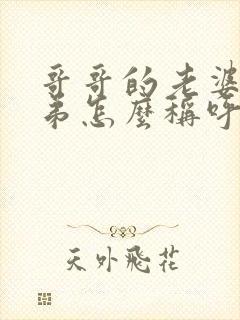 哥哥的老婆
弟怎麼稱呼
天外飛花